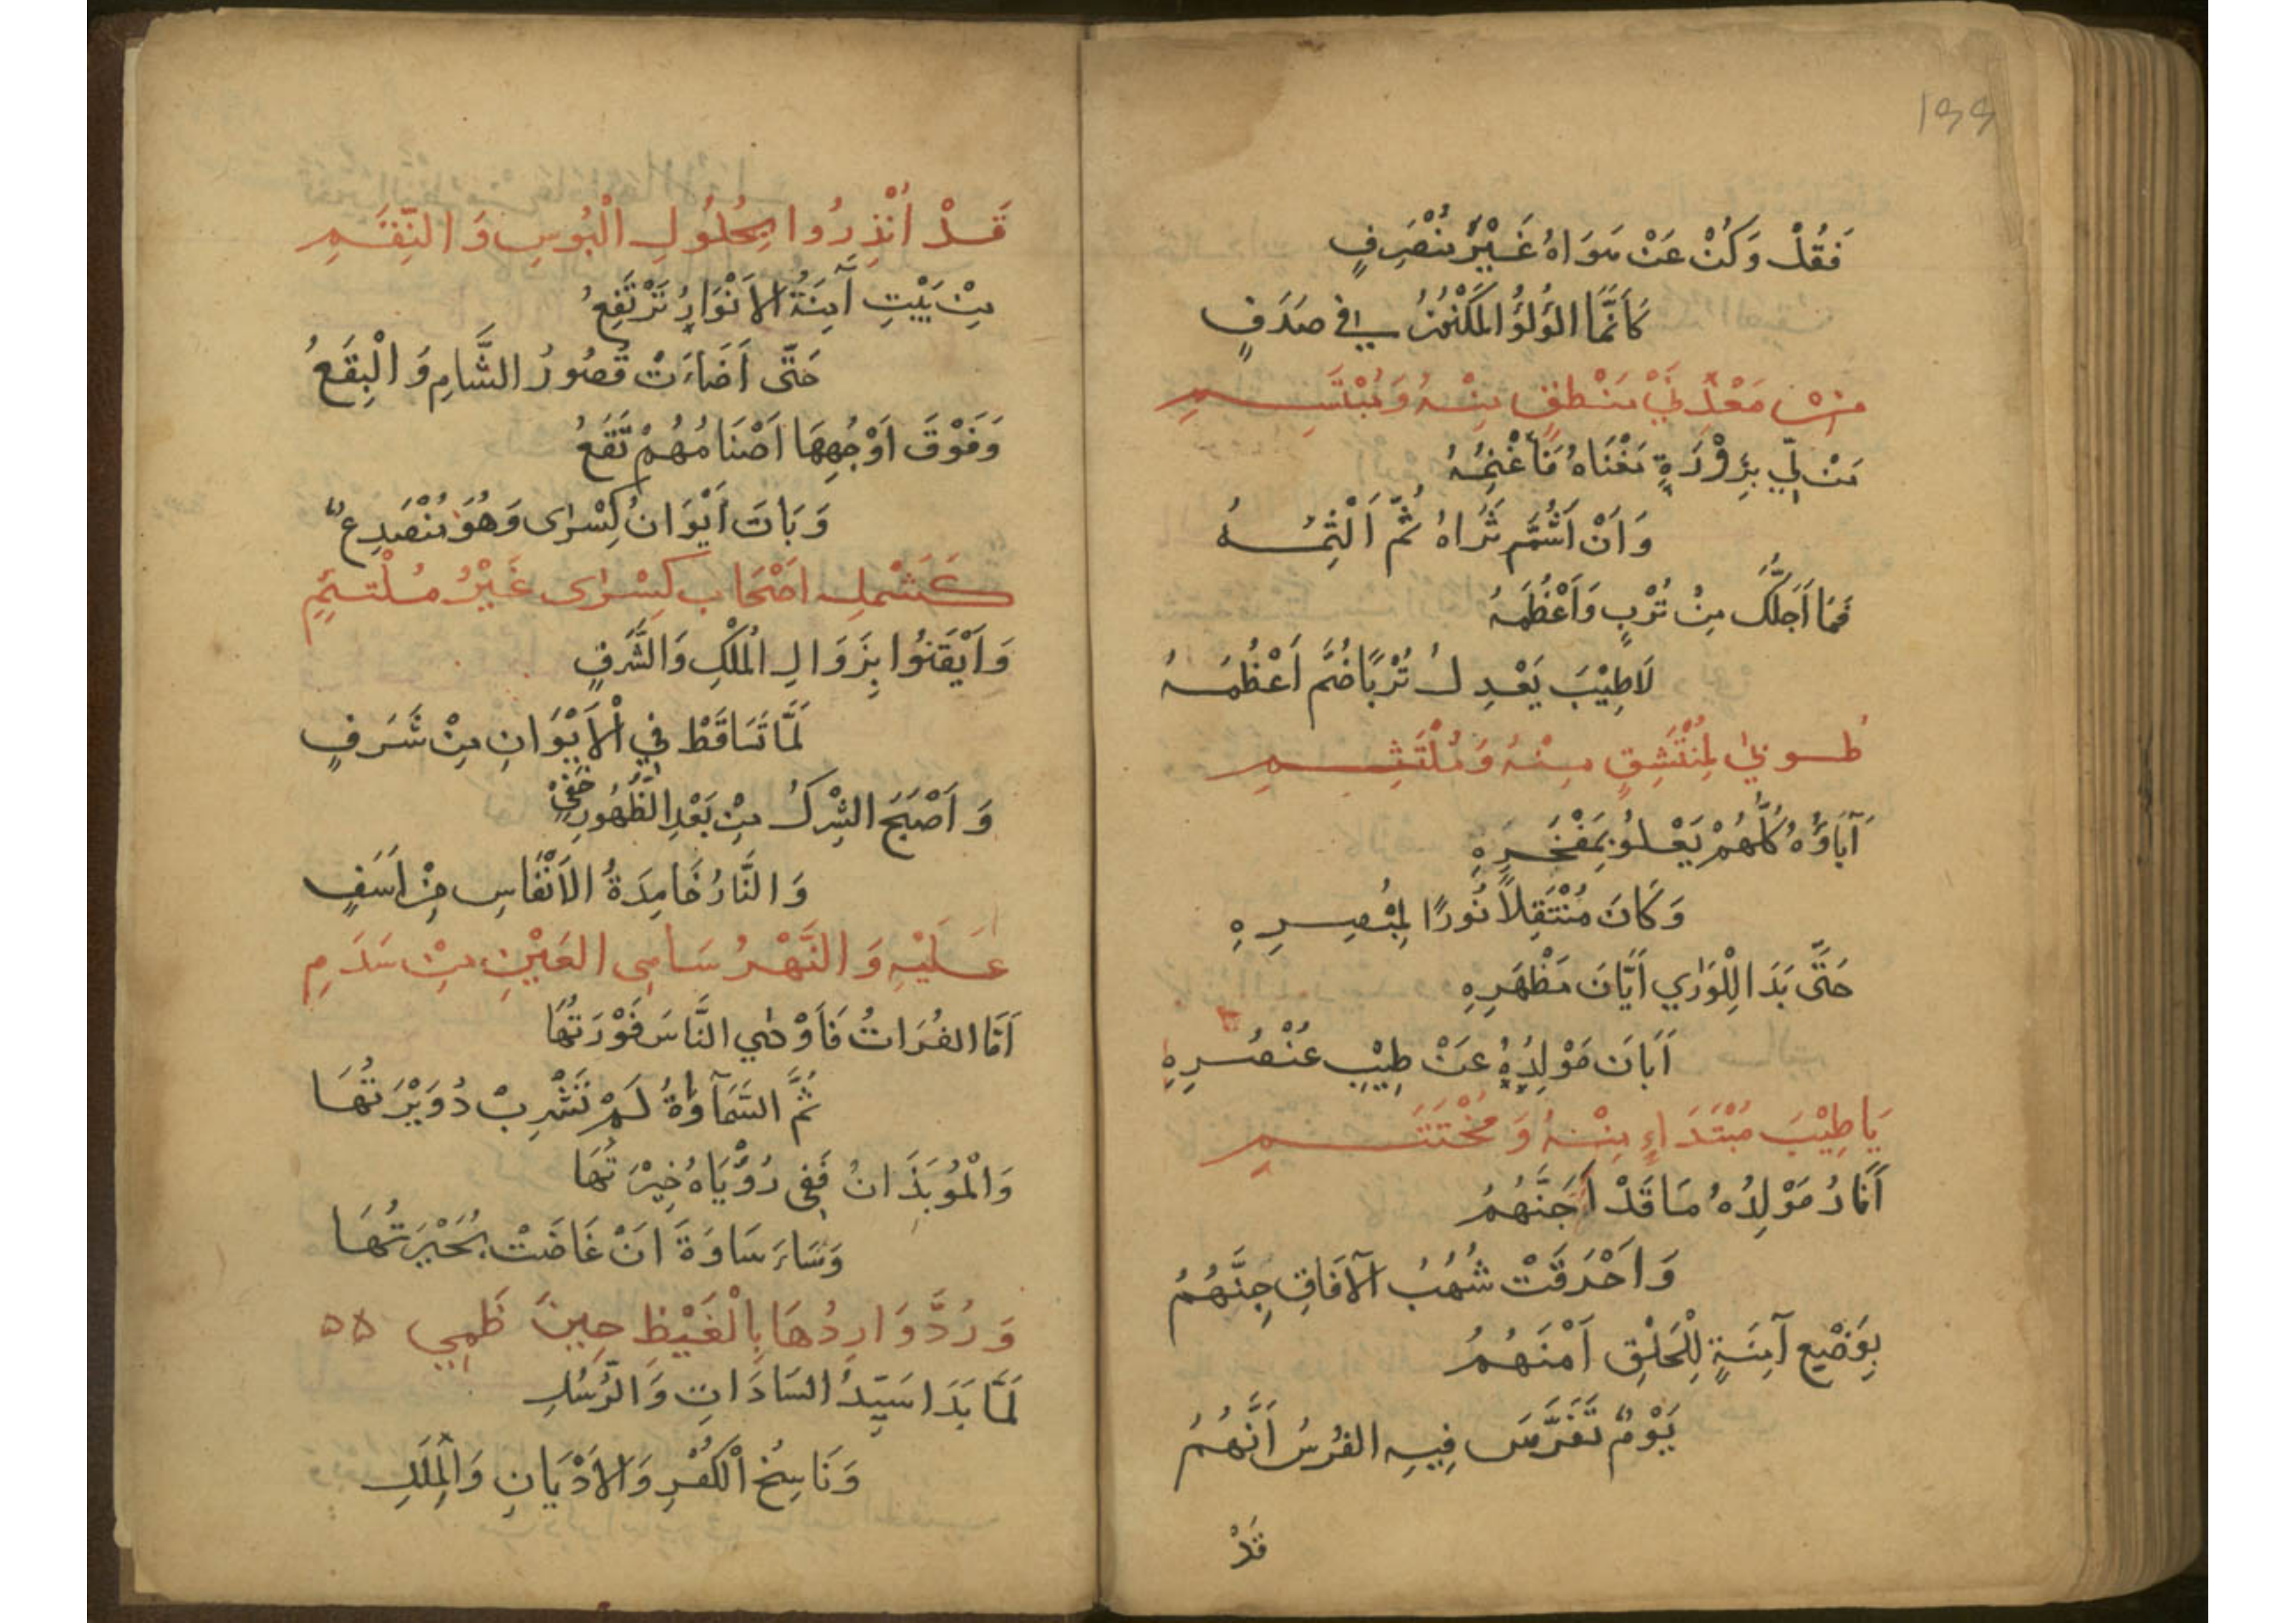 ١٩٩
فَقُلْ وَكُنْ عَنْ سَوَاهُ غَيْرُ مُنْصَرِفٍ
كَأَنَّمَا الْؤُلُؤُ الْمَكْنُونُ فِي صَدَفٍ
مِنْ مَعْدِنَيْ مَنْطِقٍ مِنْهُ وَمُبْتَسِمِ
مَنْ لِي بِزَوْرَةِ مَغْنَاهُ فَأَغْنِمُهُ
وَاَنْ اَشُمَّ ثَرَاهُ ثُمَّ اَلْثِمُهُ
فَمَا اَجَلَّكَ مِنْ تُرْبٍ وَاَعْظَمَهُ
لَاطِيْبَ يَعْدِلُ تُرْبًا ضَمَّ اَعْظُمَهُ
طُوبٰي لِمُنْتَشِقٍ مِنْهُ وَمُلْتَثِمِ
آبَاؤُهُ كُلُّهُمْ يَعْلُو بِمَفْخَرِهِ
وَكَانَ مُنْتَقِلاً نُورًا لِمُبْصِرِهِ
حَتَّى بَدَا لِلْوَرٰي اَيَّانَ مَظْهَرِهِ
اَبَانَ مَوْلِدُهُ عَنْ طِيْبِ عُنْصُرِهِ
يَا طِيْبَ مُبْتَدَاءٍ مِنْهُ وَمُخْتَتَمِ
اَنَارُ مَوْلِدُهُ مَا قَدْ اَجَنَّهُمُ
وَاَحْرَقَتْ شُهُبُ الآفَاقِ جِنَّهُمُ
بِوَضْعِ آمِنَةٍ لِلْخَلْقِ اَمْنَهُمُ
يَوْمٌ تَفَرَّسَ فِيهِ الفُرْسُ اَنَّهُمُ
قَدْ
قَدْ اُنْذِرُوا بِحُلُولِ الْبُوسِ وَالنِّقَمِ
مِنْ بَيْتِ آمِنَةُ الاَنْوَارِ تَرْتَفِعُ
حَتَّى اَضَاءَتْ قُصُورُ الشَّامِ وَالْبِقَعُ
وَفَوْقَ اَوْجُهِهَا اَصْنَامُهُمْ تَقَعُ
وَبَاتَ اَيْوَانُ كِسْرٰى وَهُوَ مُنْصَدِعٌ
كَشَمْلِ اَصْحَابِ كِسْرٰى غَيْرُ مُلْتَئِمِ
وَاَيْقَنُوا بِزَوَالِ الْمُلْكِ وَالشَّرَفِ
لَمَّا تَسَاقَطَ فِي الْاَيْوَانِ مِنْ شَرَفٍ
وَاَصْبَحَ الشِّرْكُ مِنْ بَعْدِ الظُّهُورِ خَفِيْ
وَالنَّارُ خَامِدَةُ الاَنْفَاسِ مِنْ اَسَفٍ
عَلَيْهِ وَالنَّهْرُ سَامِى العَيْنِ مِنْ سَدَمِ
اَمَّا الفُرَاتُ فَاَوْهٰي النَّاسَ فَوْرَتُهَا
ثُمَّ السَّمَآوَاةُ لَمْ تَشْرِبْ دُوَيْرَتُهَا
وَالْمُوبَذَانُ فَفِى رُؤْيَاهُ خِيْرَتُهَا
وَسَاءَ سَاوَةَ اَنْ غَاضَتْ بُحَيْرَتُهَا
وَرُدَّ وَارِدُهَا بِالْغَيْظِ حِينَ ظَمِي ۵۵
لَمَّا بَدَا سَيِّدُ السَادَاتِ وَالرُّسُلِ
وَنَاسِخُ الْكُفْرِ وَالاَدْيَانِ وَالْمِلَلِ